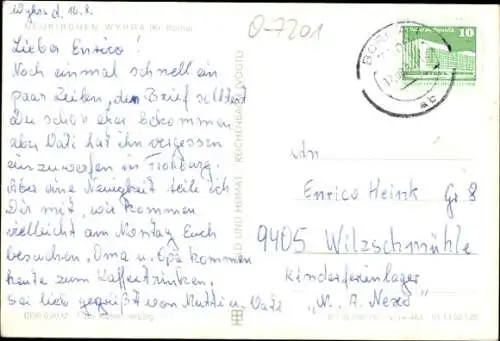 Wyhra d. 16.8.
NEUKIRCHEN-WYHRA (Kr. Borna)
O-7201
Lieber Enrico!
Noch einmal schnell ein
paar Zeilen, den Brief solltest
Du schon eher bekommen
aber Vati hat ihn vergessen
einzuwerfen in Frohburg.
Aber eine Neuigkeit teile ich
Dir mit, wir kommen
vielleicht am Montag Euch
besuchen, Oma u. Opa kommen
heute zum Kaffeetrinken.
Sei lieb gegrüßt von Mutti u. Vati
BILD UND HEIMAT REICHENBACH (VOGTL)
BORNA
10
An
Enrico Heink Gr 8
9405 Wilzschmühle
Kinderferienlager
"M. A. Nexö"